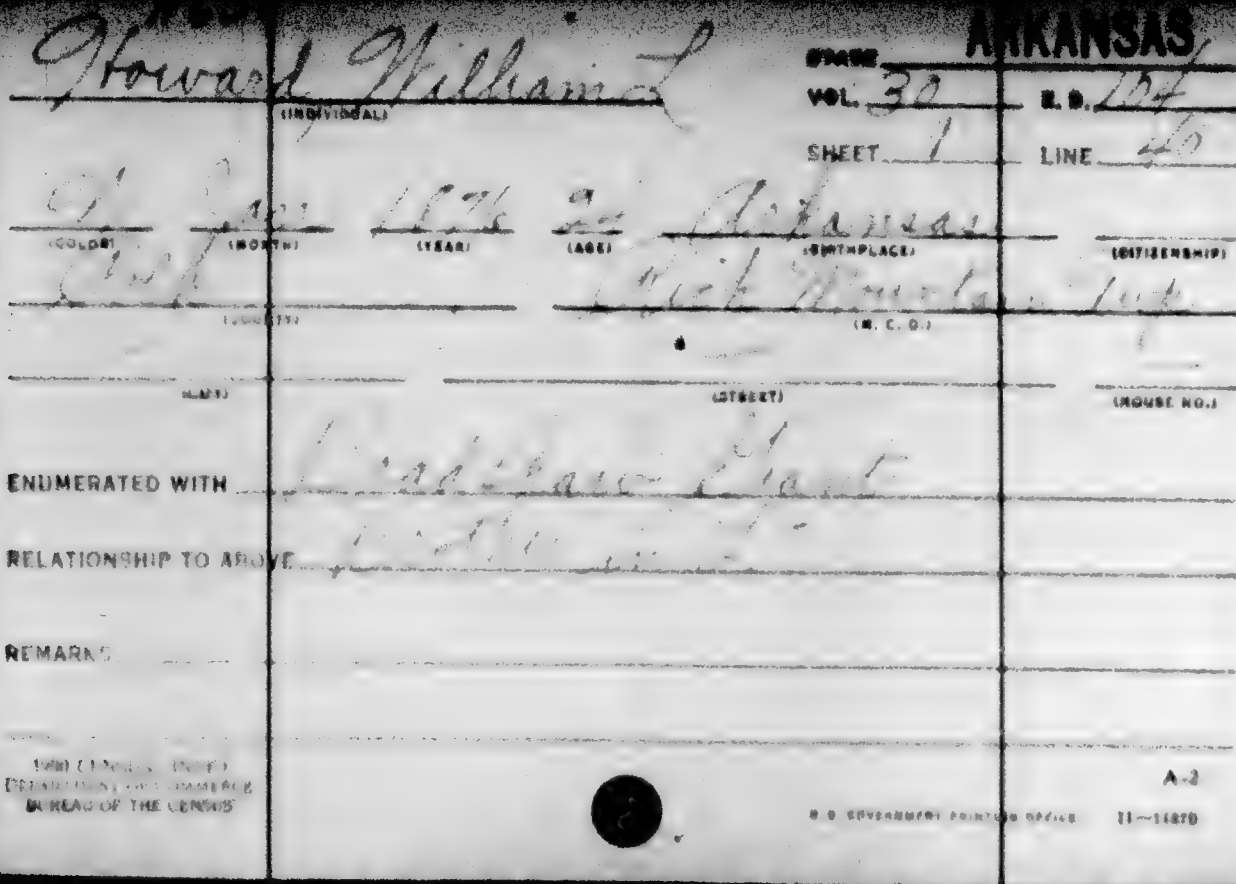 ARKANSAS
Howard William L
STATE
(INDIVIDUAL)
VOL. 30 E. D. 104
SHEET 1 LINE
W Jan 1876 Arkansas
(COLOR) (MONTH) (YEAR) (AGE) (BIRTHPLACE) (CITIZENSHIP)
Polk Rich Mountain Twp
(COUNTY) (M. C. D.)
(CITY) (STREET) (HOUSE NO.)
ENUMERATED WITH Bradshaw Grant
RELATIONSHIP TO ABOVE
REMARKS
1900 CENSUS INDEX
DEPARTMENT OF COMMERCE
BUREAU OF THE CENSUS
A-2
U.S. GOVERNMENT PRINTING OFFICE